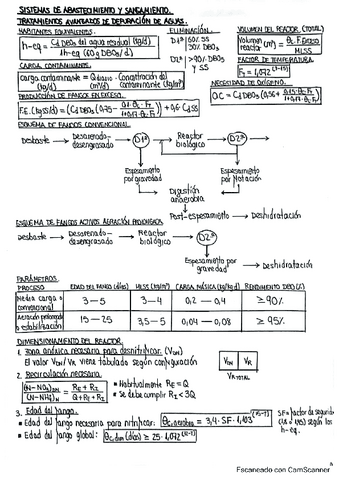 SISTEMAS DE ABASTECIMIENTO Y SANEAMIENTO.
TRATAMIENTOS AVANZADOS DE DEPURACIÓN DE AGUAS.
HABITANTES EQUIVALENTES.
h-eq = Cd DBO5 del agua residual (kg/d)
1h-eq (60 g DBO5/d)
ELIMINACIÓN.
D1ª 60% SS
30% DBO5
D2ª >90% DBO5
y SS
VOLUMEN DEL REACTOR (TOTAL)
Volumen reactor (m³) = θc · F. Exceso
MLSS
FACTOR DE TEMPERATURA
CARGA CONTAMINANTE.
carga contaminante (kg/d) = Q diario (m³/d) · Concentración del contaminante (kg/m³)
PRODUCCIÓN DE FANGOS EN EXCESO.
NECESIDAD DE OXÍGENO.
ESQUEMA DE FANGOS CONVENCIONAL.
Desbaste → Desarenado-desengrasado → D1ª → Reactor biológico → D2ª
Espesamiento por gravedad
Espesamiento por flotación
Digestión anaerobia
Post-espesamiento → Deshidratación
ESQUEMA DE FANGOS ACTIVOS AERACIÓN PROLONGADA.
Desbaste → Desarenado-desengrasado → Reactor biológico → D2ª
Espesamiento por gravedad → Deshidratación
PARÁMETROS.
PROCESO EDAD DEL FANGO (días) MLSS (kg/m³) CARGA MÁSICA (kg/kg d) RENDIMIENTO DBO (%)
Media carga o convencional 3 – 5 3 – 4 0,2 – 0,4 ≥ 90%
Aeración prolongada o estabilización 15 – 25 3,5 – 5 0,04 – 0,08 ≥ 95%
DIMENSIONAMIENTO DEL REACTOR.
1. Zona anóxica necesaria para desnitrificar. (VDN)
El valor VDN/VR viene tabulado según configuración
VDN VR
VR TOTAL
2. Recirculación necesaria.
• Habitualmente RE = Q
• Se debe cumplir RI < 3Q
3. Edad del fango.
• Edad del fango necesario para nitrificar:
• Edad del fango global:
SF = factor de seguridad
según los h-eq.
Escaneado con CamScanner